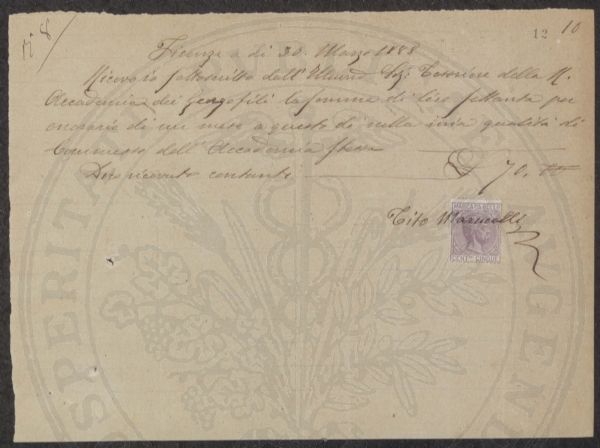 N. 8
12 10
Firenze a dì 30. Marzo 1888
Ricevo io sottoscritto dall' Sig. Tesoriere della R.
Accademia dei Georgofili la somma di Lire settanta per
onorario di un mese a questo dì nella mia qualità di
Commesso dell' Accademia stessa
Dico ricevuto contante £ 70. =
Tito Marucelli
MARCA DA BOLLO
CENT. CINQUE
PROSPERITA AUGENDA